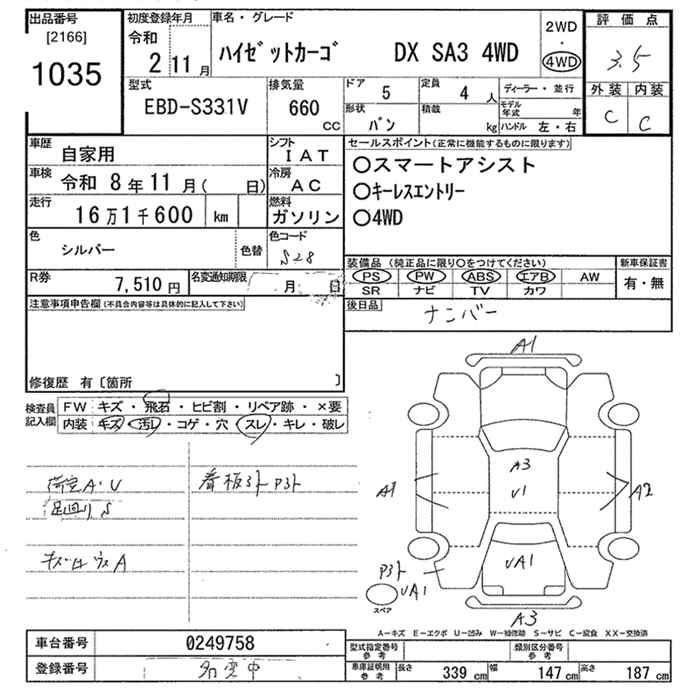 出品番号
[2166]
1035
初度登録年月
令和
2 11月
車名・グレード
ハイゼットカーゴ DX SA3 4WD
2WD
・
4WD
評価点
3.5
外装 内装
C C
型式
EBD-S331V
排気量
660
CC
ドア
5
定員
4 人
形状
バン
積載
kg
ディーラー・並行
モデル年式 年
ハンドル 左・右
車歴
自家用
シフト
IAT
車検
令和 8年11月( 日)
冷房
AC
走行
16万1千600 km
燃料
ガソリン
色
シルバー
色替
色コード
S28
R券
7,510円
名変通知期限
月 日
セールスポイント(正常に機能するものに限ります)
○スマートアシスト
○キーレスエントリー
○4WD
装備品(純正品に限り○をつけてください)
PS PW ABS エアB AW
SR ナビ TV カワ
新車保証書
有・無
後日品
ナンバー
注意事項申告欄(不具合内容等は具体的に記入して下さい)
修復歴 有〔箇所 〕
検査員
記入欄
FW キズ・飛石・ヒビ割・リペア跡・×要
内装 キズ・汚レ・コゲ・穴・スレ・キレ・破レ
荷室A・U
足回りS
看板ヨト Pヨト
A1
A3
U1
A1
A2
UA1
Pヨト
UA1
スペア
A3
A−キズ E−エクボ U−凹み W−補修跡 S−サビ C−腐食 XX−交換済
車台番号
0249758
登録番号
名変中
型式指定番号
参考
類別区分番号
参考
車庫証明用
参考
長さ 339 cm 幅 147 cm 高さ 187 cm